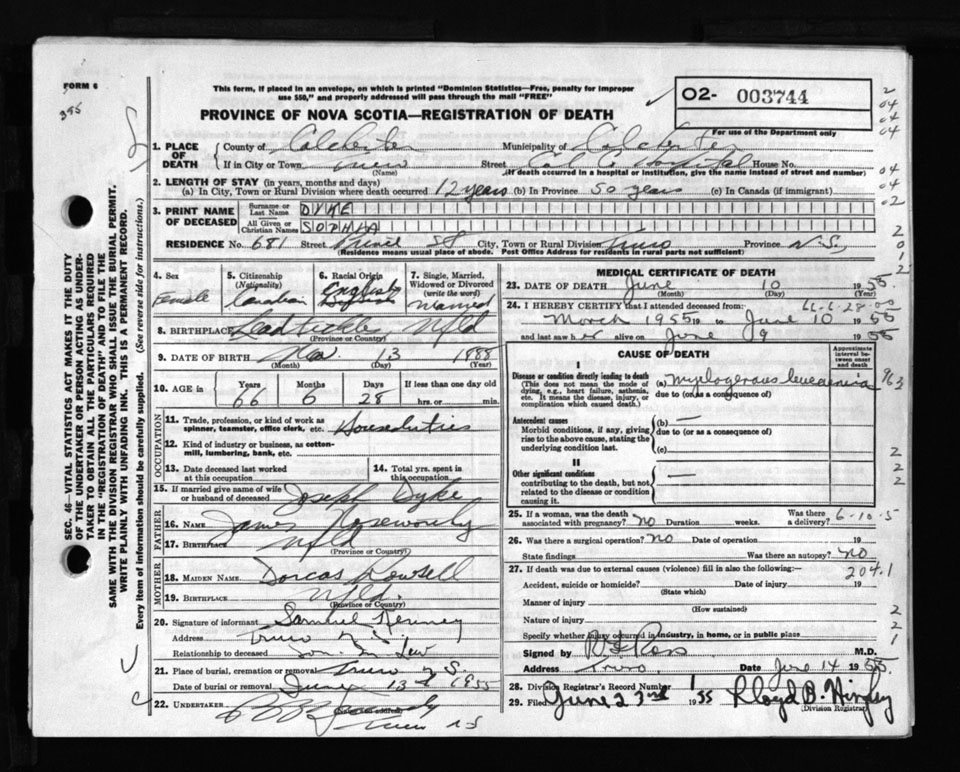 FORM 6
395
This form, if placed in an envelope, on which is printed "Dominion Statistics—Free, penalty for improper
use $50," and properly addressed will pass through the mail "FREE"
PROVINCE OF NOVA SCOTIA—REGISTRATION OF DEATH
02- 003744
For use of the Department only
SEC. 46—VITAL STATISTICS ACT MAKES IT THE DUTY
OF THE UNDERTAKER OR PERSON ACTING AS UNDER-
TAKER TO OBTAIN ALL THE PARTICULARS REQUIRED
IN THE "REGISTRATION OF DEATH" AND TO FILE THE
SAME WITH THE DIVISION REGISTRAR WHO SHALL ISSUE THE BURIAL PERMIT.
WRITE PLAINLY WITH UNFADING INK. THIS IS A PERMANENT RECORD.
Every item of information should be carefully supplied. (See reverse side for instructions.)
1. PLACE OF DEATH
County of Colchester Municipality of Colchester
If in City or Town Truro Street Col Co Hospital House No.
(Name) (If death occurred in a hospital or institution, give name instead of street and number)
2. LENGTH OF STAY (in years, months and days)
(a) In City, Town or Rural Division where death occurred 12 years (b) In Province 50 years (c) In Canada (if immigrant)
3. PRINT NAME OF DECEASED
Surname or Last Name DYKE
All Given or Christian Names SOPHIA
RESIDENCE No. 681 Street Prince St City, Town or Rural Division Truro Province N.S.
(Residence means usual place of abode. Post Office Address for residents in rural parts not sufficient)
4. Sex Female
5. Citizenship (Nationality) Canadian
6. Racial Origin English
7. Single, Married, Widowed or Divorced (write the word) Married
8. BIRTHPLACE Leadtickle Nfld
(Province or Country)
9. DATE OF BIRTH Nov. 13 1888
(Month) (Day) (Year)
10. AGE in Years 66 Months 6 Days 28 If less than one day old hrs. or min.
OCCUPATION
11. Trade, profession, or kind of work as spinner, teamster, office clerk, etc. Houseduties
12. Kind of industry or business, as cotton-mill, lumbering, bank, etc.
13. Date deceased last worked at this occupation
14. Total yrs. spent in this occupation
15. If married give name of wife or husband of deceased Joseph Dyke
FATHER
16. Name James Noseworthy
17. Birthplace Nfld
(Province or Country)
MOTHER
18. MAIDEN NAME Dorcas Rowsell
19. BIRTHPLACE Nfld.
(Province or Country)
20. Signature of informant Samuel Kenney
Address Truro N.S.
Relationship to deceased Son-in-Law
21. Place of burial, cremation or removal Truro N.S.
Date of burial or removal June 13th 1955
22. UNDERTAKER
Truro N S
MEDICAL CERTIFICATE OF DEATH
23. DATE OF DEATH June 10 1955
(Month) (Day) (Year)
24. I HEREBY CERTIFY that I attended deceased from:
March 1955 19 to June 10 1955
and last saw her alive on June 9 1955
CAUSE OF DEATH
Approximate interval between onset and death
I
Disease or condition directly leading to death
(This does not mean the mode of dying, e.g., heart failure, asthenia, etc. It means the disease, injury, or complication which caused death.)
(a) Mylogenous leucaemia
due to (or as a consequence of)
Antecedent causes
Morbid conditions, if any, giving rise to the above cause, stating the underlying condition last.
(b)
due to (or as a consequence of)
(c)
II
Other significant conditions contributing to the death, but not related to the disease or condition causing it.
25. If a woman, was the death associated with pregnancy? No Duration weeks. Was there a delivery? 6-10-5
26. Was there a surgical operation? No Date of operation 19
State findings Was there an autopsy? No
27. If death was due to external causes (violence) fill in also the following:—
204.1
Accident, suicide or homicide? Date of injury 19
(State which)
Manner of injury
(How sustained)
Nature of injury
Specify whether injury occurred in industry, in home, or in public place
Signed by R S Ross M.D.
Address Truro Date June 14 1955
28. Division Registrar's Record Number
29. Filed June 23rd 1955 Lloyd B. Hingley
(Division Registrar)